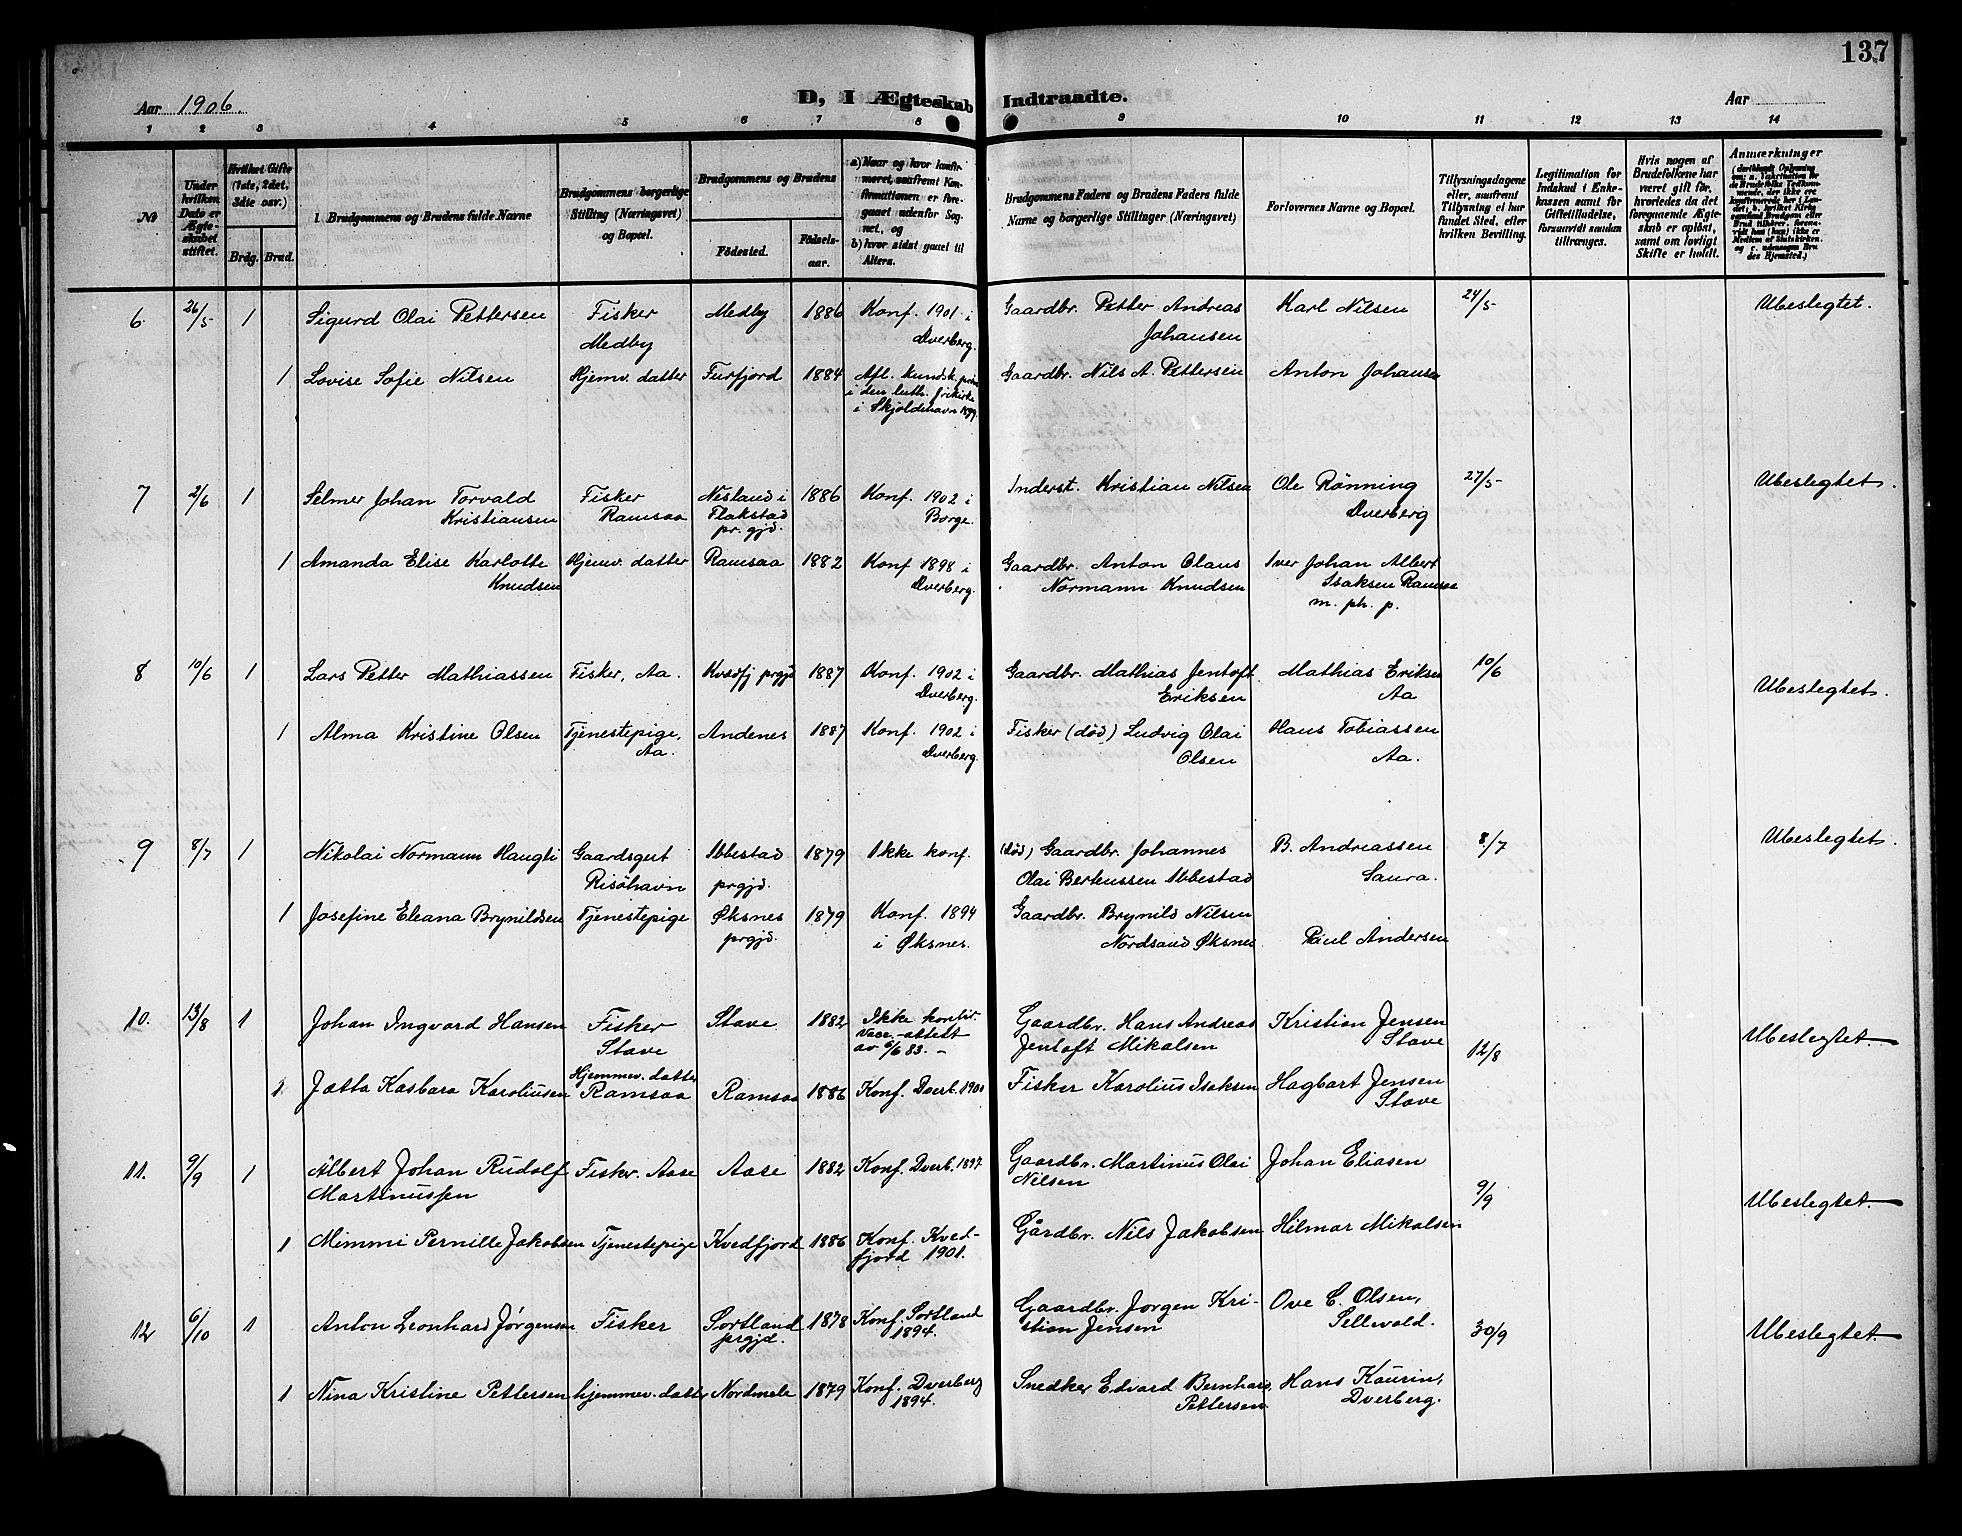 137
Aar 1906.
D, I Ægteskab Indtraadte.
Aar
1 2 3 4 5 6 7 8 9 10 11 12 13 14
№
Under hvilken Dato er Ægteskabet stiftet.
Hvilket Gifte (1ste, 2det, 3die osv.)
Brdg. Brud.
1. Brudgommens og Brudens fulde Navne
Brudgommens borgerlige Stilling (Næringsvei) og Bopæl.
Brudgommens og Brudens
Fødested.
Fødselsaar.
a) Naar og hvor konfirmeret, saafremt Konfirmationen er foregaaet udenfor Sognet, og
b) hvor sidst gaaet til Alters.
Brudgommens Faders og Brudens Faders fulde Navne og borgerlige Stillinger (Næringsvei)
Forlovernes Navne og Bopæl.
Tillysningsdagene eller, saafremt Tillysning ei har fundet Sted, efter hvilken Bevilling.
Legitimation for Indskud i Enkekassen samt for Giftetilladelse, forsaavidt saadan tiltrænges.
Hvis nogen af Brudefolkene har været gift før, hvorledes da det foregaaende Ægteskab er opløst, samt om lovligt Skifte er holdt.
Anmærkninger
6. 26/5 1 Sigurd Olai Pettersen Fisker Medby 1886 Konf. 1901 i Gaardbr. Petter Andreas Karl Nilsen 24/5 Ubeslegtet.
Medby Dverberg. Johansen
1 Lovise Sofie Nilsen Hjemv. datter Furfjord 1884 Afl. kundsk. Gaardbr. Nils A. Pettersen Anton Johansen
i den luth. frikirke
i Skjoldehavn
7 2/6 1 Selmer Johan Torvald Fisker Nesland i 1886 Konf. 1902 i Inderst. Kristian Nilsen Ole Rønning 27/5 Ubeslegtet.
Kristiansen Ramsaa Flakstad Borge. Dverberg
pr.gjd.
1 Amanda Elise Karlotte Hjemv. datter Ramsaa 1882 Konf 1898 i Gaardbr. Anton Olaus Iver Johan Albert
Knudsen Dverberg. Normann Knudsen Isaksen Ramsaa
m. ph. p.
8 10/6 1 Lars Petter Mathiassen Fisker, Aa. Kvædfj prgjd 1887 Konf. 1902 i Gaardbr. Mathias Jentoft Mathias Eriksen 10/6 Ubeslegtet.
Dverberg. Eriksen Aa
1 Alma Kristine Olsen Tjenestepige, Andenes 1887 Konf. 1902 i Fisker (død) Ludvig Olai Hans Tobiassen
Aa. Dverberg. Olsen Aa.
9 8/7 1 Nikolai Normann Haugli Gaardsgut Ibbestad 1879 Ikke konf. (død) Gaardbr. Johannes B. Andreassen 8/7 Ubeslegtet.
Risøhavn prgjd. Olai Berteussen Ibbestad Saura.
1 Josefine Eleana Brynildsen Tjenestepige Øksnes 1879 Konf. 1894 Gaardbr. Brynild Nilsen
prgjd. i Øksnes. Nordsand Øksnes Paul Andersen
10. 13/8 1 Johan Ingvard Hansen Fisker Stave 1882 Ikke konfir. Gaardbr. Hans Andreas Kristian Jensen 12/8 Ubeslegtet.
Stave Vacc.-attest Jentoft Mikalsen Stave
av 6/6 83.
1 Jætta Kasbara Karoliusen Hjemmev. datter Ramsaa 1886 Konf. Dverb. Fisker Karolius Isaksen Hagbart Jensen
Ramsaa Stave
11. 9/9 1 Albert Johan Rudolf Fisker. Aase Aase 1882 Konf. Dverb. 1897 Gaardbr. Martinus Olai Johan Eliasen 9/9 Ubeslegtet.
Martinussen Nilsen
1 Mimmi Pernille Jakobsen Tjenestepige Kvedfjord 1886 Konf. Kved- Gårdbr. Nils Jakobsen Hilmar Mikalsen
fjord 1901.
12 6/10 1 Anton Leonhard Jørgensen Fisker Sortland 1878 Konf. Sortland Gaardbr. Jørgen Kri- Ove C. Olsen, 30/9 Ubeslegtet.
prgjd. 1894. stian Jensen Sellevold.
1 Nina Kristine Pettersen hjemmev. datter Nordmela 1879 Konf. Dverberg Snedker Edvard Bernhard Hans Kaurin,
1894. Pettersen Dverberg.